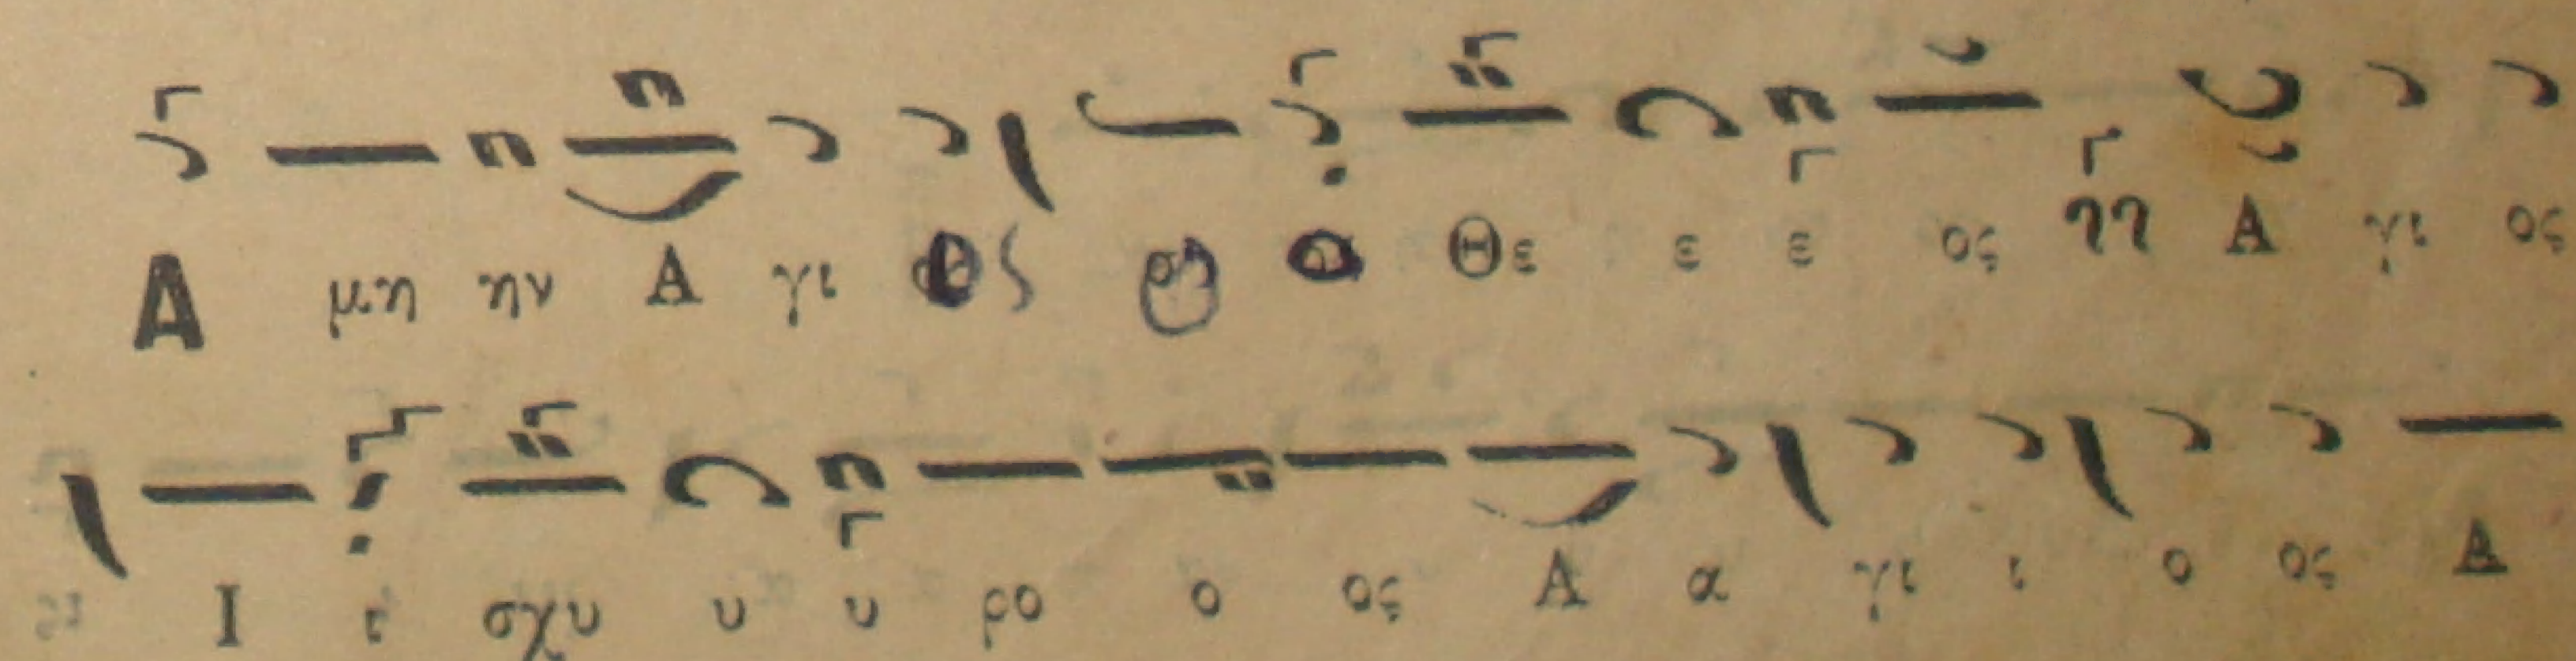 Α μη ην Α γι ος ο ο Θε ε ε ος Α γι ος
Ι ι σχυ υ υ ρο ο ος Α α γι ι ο ος Α